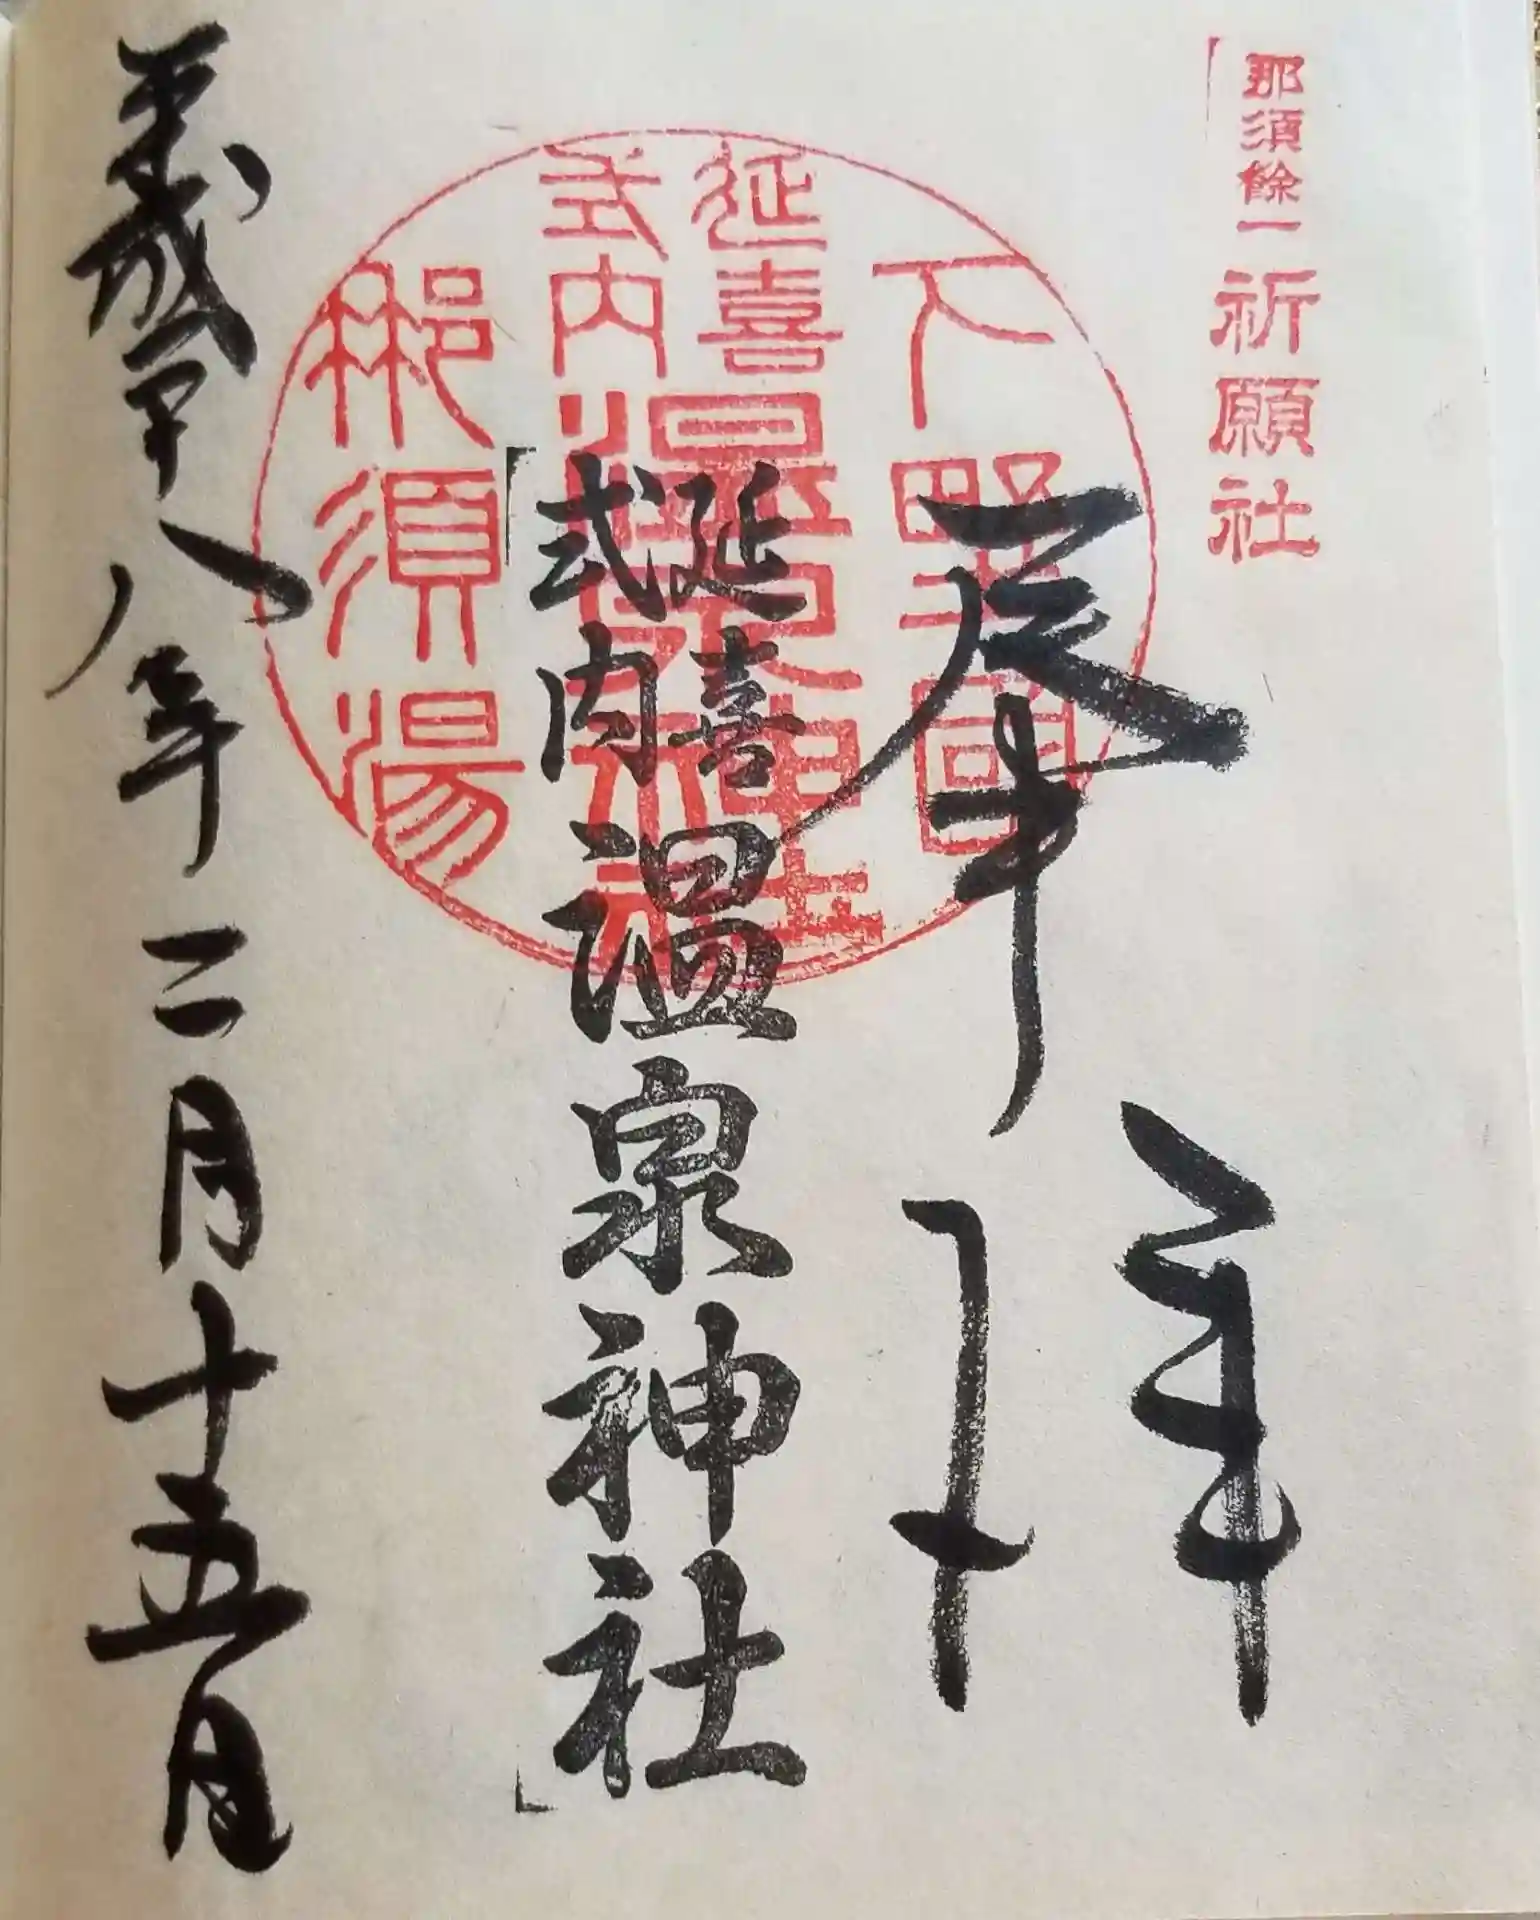 那須餘一祈願社
奉拝
下野國
延喜式内
温泉神社
那須湯
延喜式内温泉神社
平成廿八年二月十五日